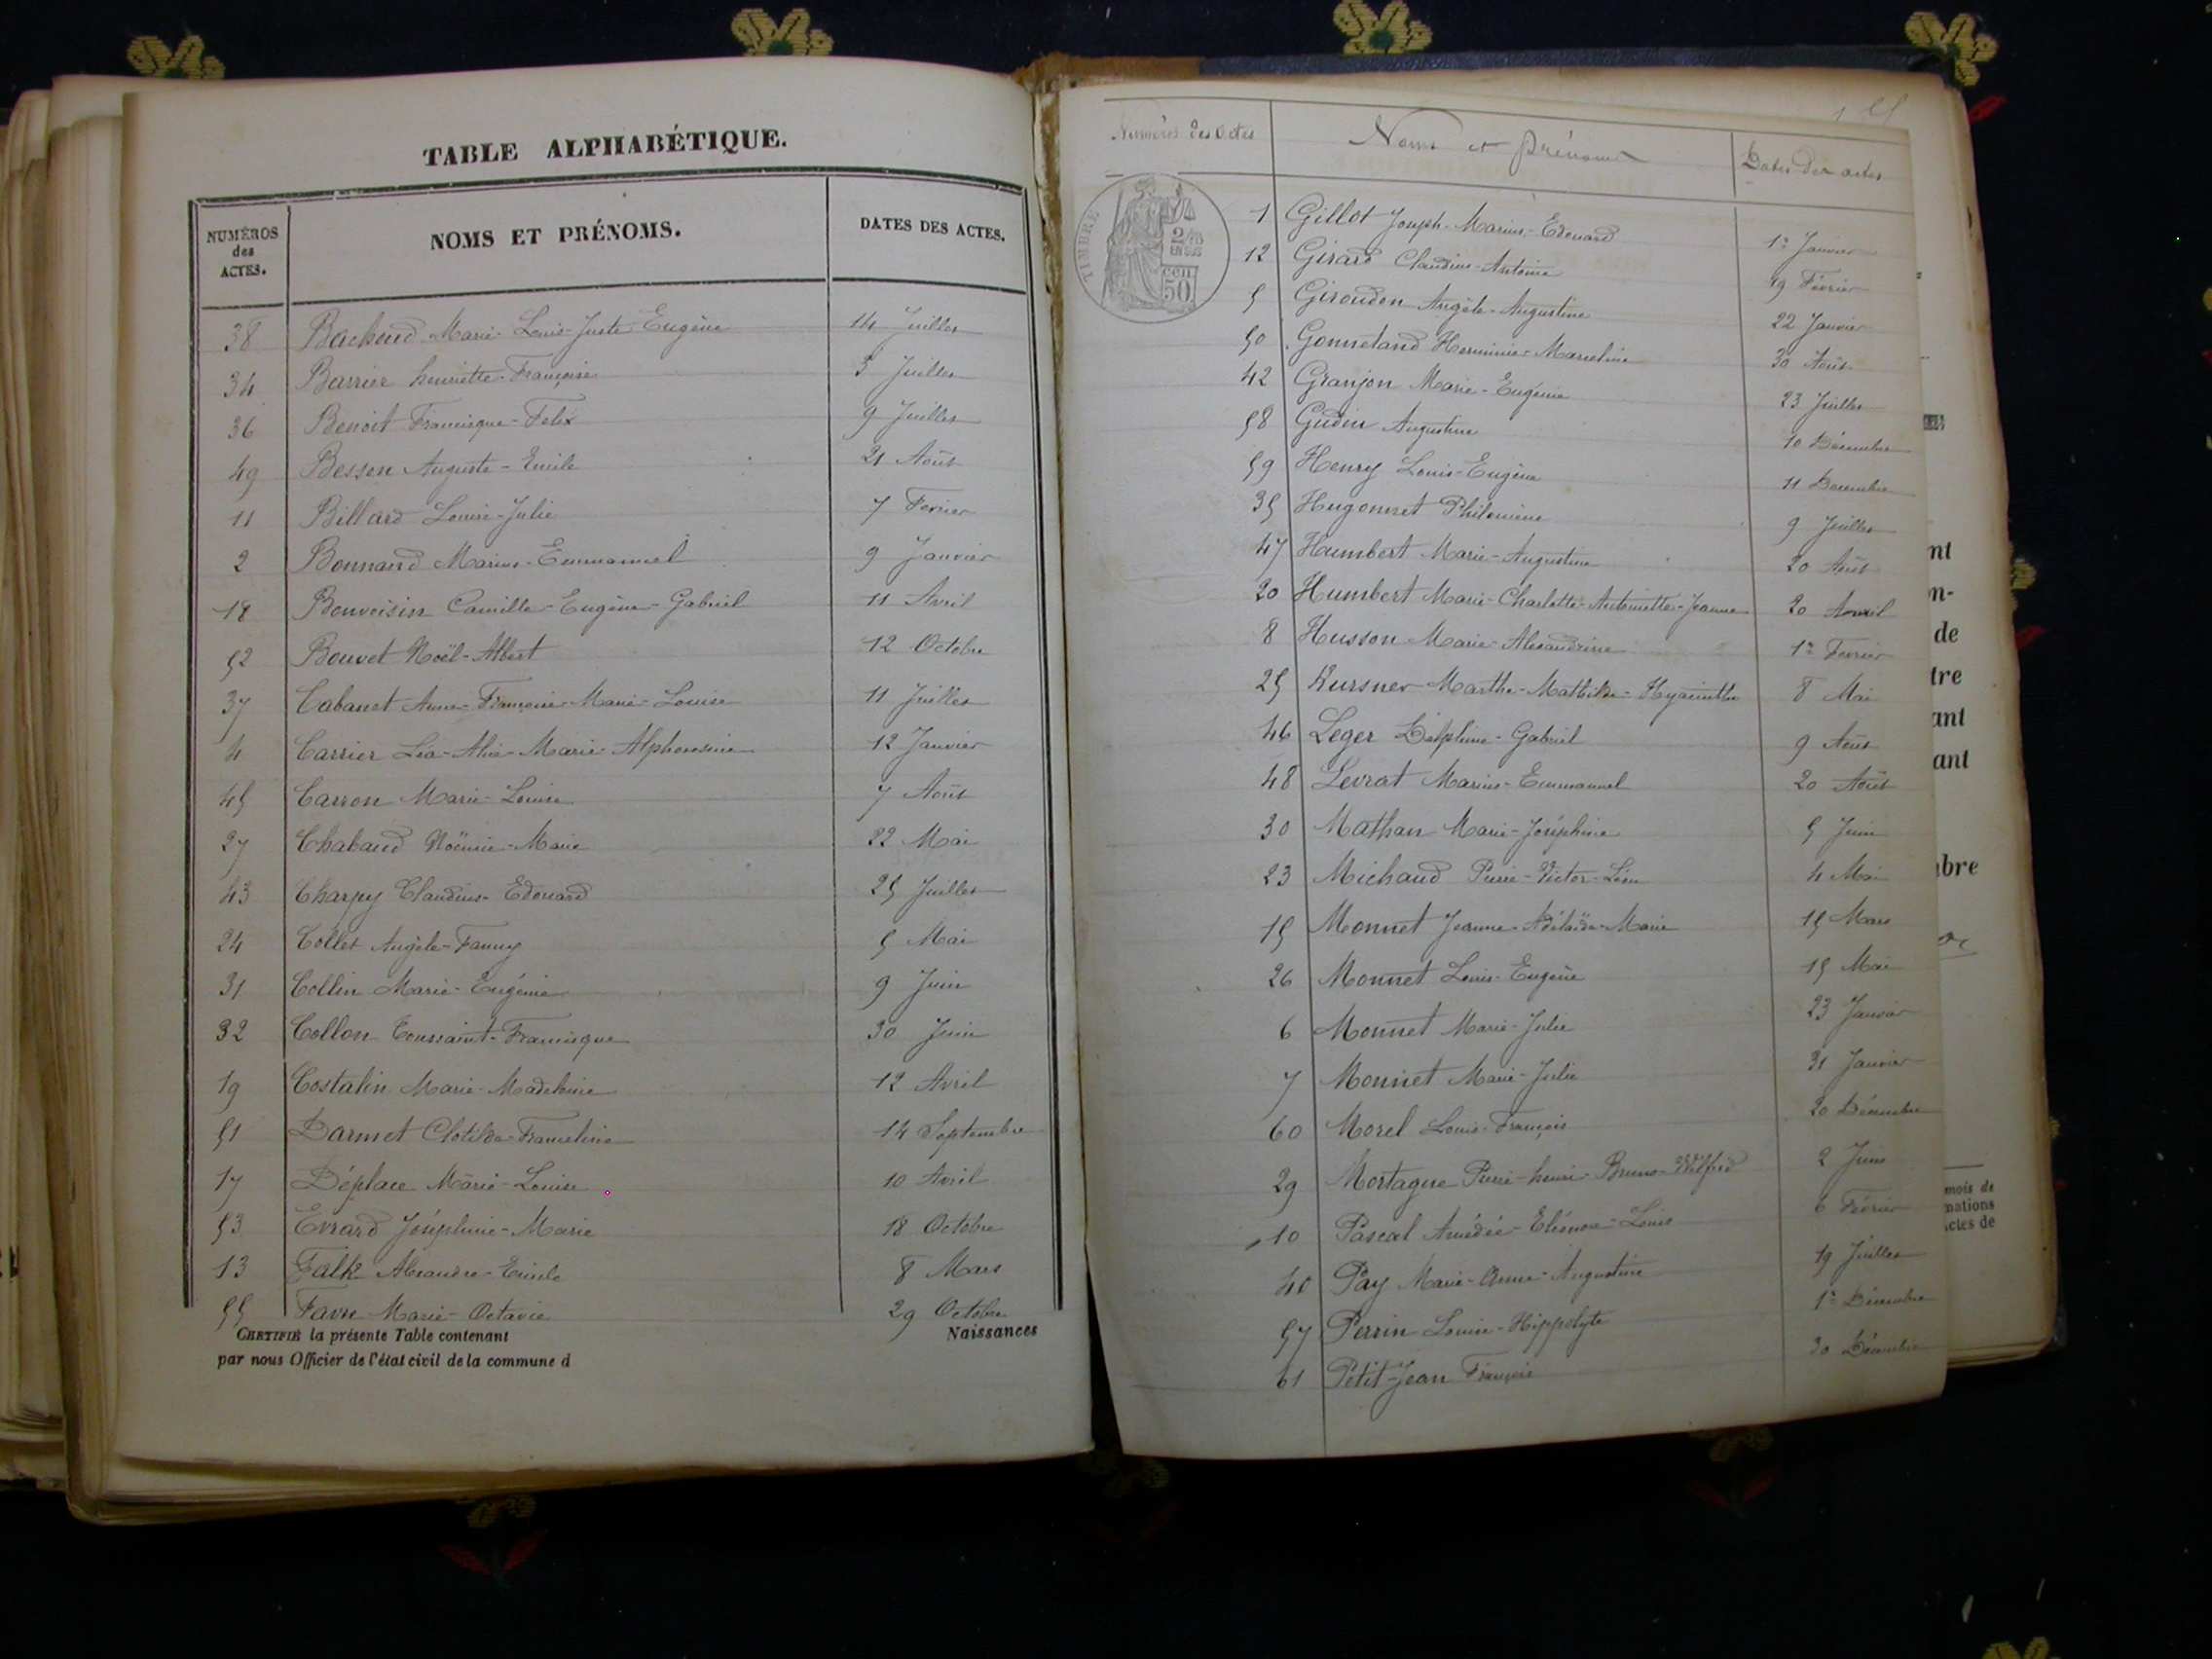 TABLE ALPHABÉTIQUE.
NUMÉROS des ACTES. NOMS ET PRÉNOMS. DATES DES ACTES.
38 Bachoud Marie-Louis-Juste-Eugène 14 Juillet
34 Barrier henriette-Françoise 3 Juillet
36 Benoit Francisque-Felix 9 Juillet
49 Besson Auguste-Emile 21 Août
11 Billard Louise-Julie 7 Fevrier
2 Bonnand Marius-Emmanuel 9 Janvier
18 Bonvoisin Camille-Eugène-Gabriel 11 Avril
52 Bouvet Noël-Albert 12 Octobre
37 Cabanet Anne-Françoise-Marie-Louise 11 Juillet
4 Carrier Léa-Alice-Marie-Alphonsine 12 Janvier
45 Carron Marie-Louise 7 Août
27 Chabaud Noëmie-Marie 22 Mai
43 Charpy Claudius-Edouard 25 Juillet
24 Collet Angèle-Fanny 5 Mai
31 Collin Marie-Eugénie 9 Juin
32 Collon Toussaint-Francisque 30 Juin
19 Costalin Marie-Madeleine 12 Avril
51 Darmet Clotilde-Franceline 14 Septembre
17 Déplace Marie-Louise 10 Avril
53 Evrard Joséphine-Marie 18 Octobre
13 Falk Alexandre-Emile 8 Mars
55 Favre Marie-Octavie 29 Octobre
CERTIFIÉ la présente Table contenant Naissances
par nous Officier de l'état civil de la commune d
Numéros des Actes Noms et prénoms Dates des actes
TIMBRE
2/10 EN SUS
50 cen
1 Gillot Joseph-Marius-Edouard 1er Janvier
12 Girard Claudius-Antoine 19 Février
5 Giroudon Angèle-Augustine 22 Janvier
50 Gonnetand Herminie-Marceline 30 Août
42 Granjon Marie-Eugénie 23 Juillet
58 Gudin Augustine 10 Décembre
59 Henry Louis-Eugène 11 Décembre
35 Hugonnet Philomène 9 Juillet
47 Humbert Marie-Augustine 20 Août
20 Humbert Marie-Charlotte-Antoinette-Jeanne 20 Avril
8 Husson Marie-Alexandrine 1er Fevrier
25 Kursner Marthe-Mathilde-Hyacinthe 8 Mai
46 Leger Delphine-Gabriel 9 Août
48 Levrat Marius-Emmanuel 20 Août
30 Mathan Marie-Joséphine 5 Juin
23 Michaud Pierre-Victor-Léon 4 Mai
15 Monnet Jeanne-Adélaïde-Marie 15 Mars
26 Monnet Louis-Eugène 15 Mai
6 Monnet Marie-Julie 23 Janvier
7 Monnet Marie-Julie 31 Janvier
60 Morel Louis-François 20 Décembre
29 Mortagne Pierre-henri-Bruno-Wilfrid 2 Juin
10 Pascal Amédée-Eléonore-Louis 6 Février
40 Pay Marie-Anne-Augustine 19 Juillet
57 Perrin Louise-Hippolyte 1er Décembre
61 Petit-Jean François 30 Décembre
nt
n-
de
tre
ant
ant
bre
mois de
mations
ctes de